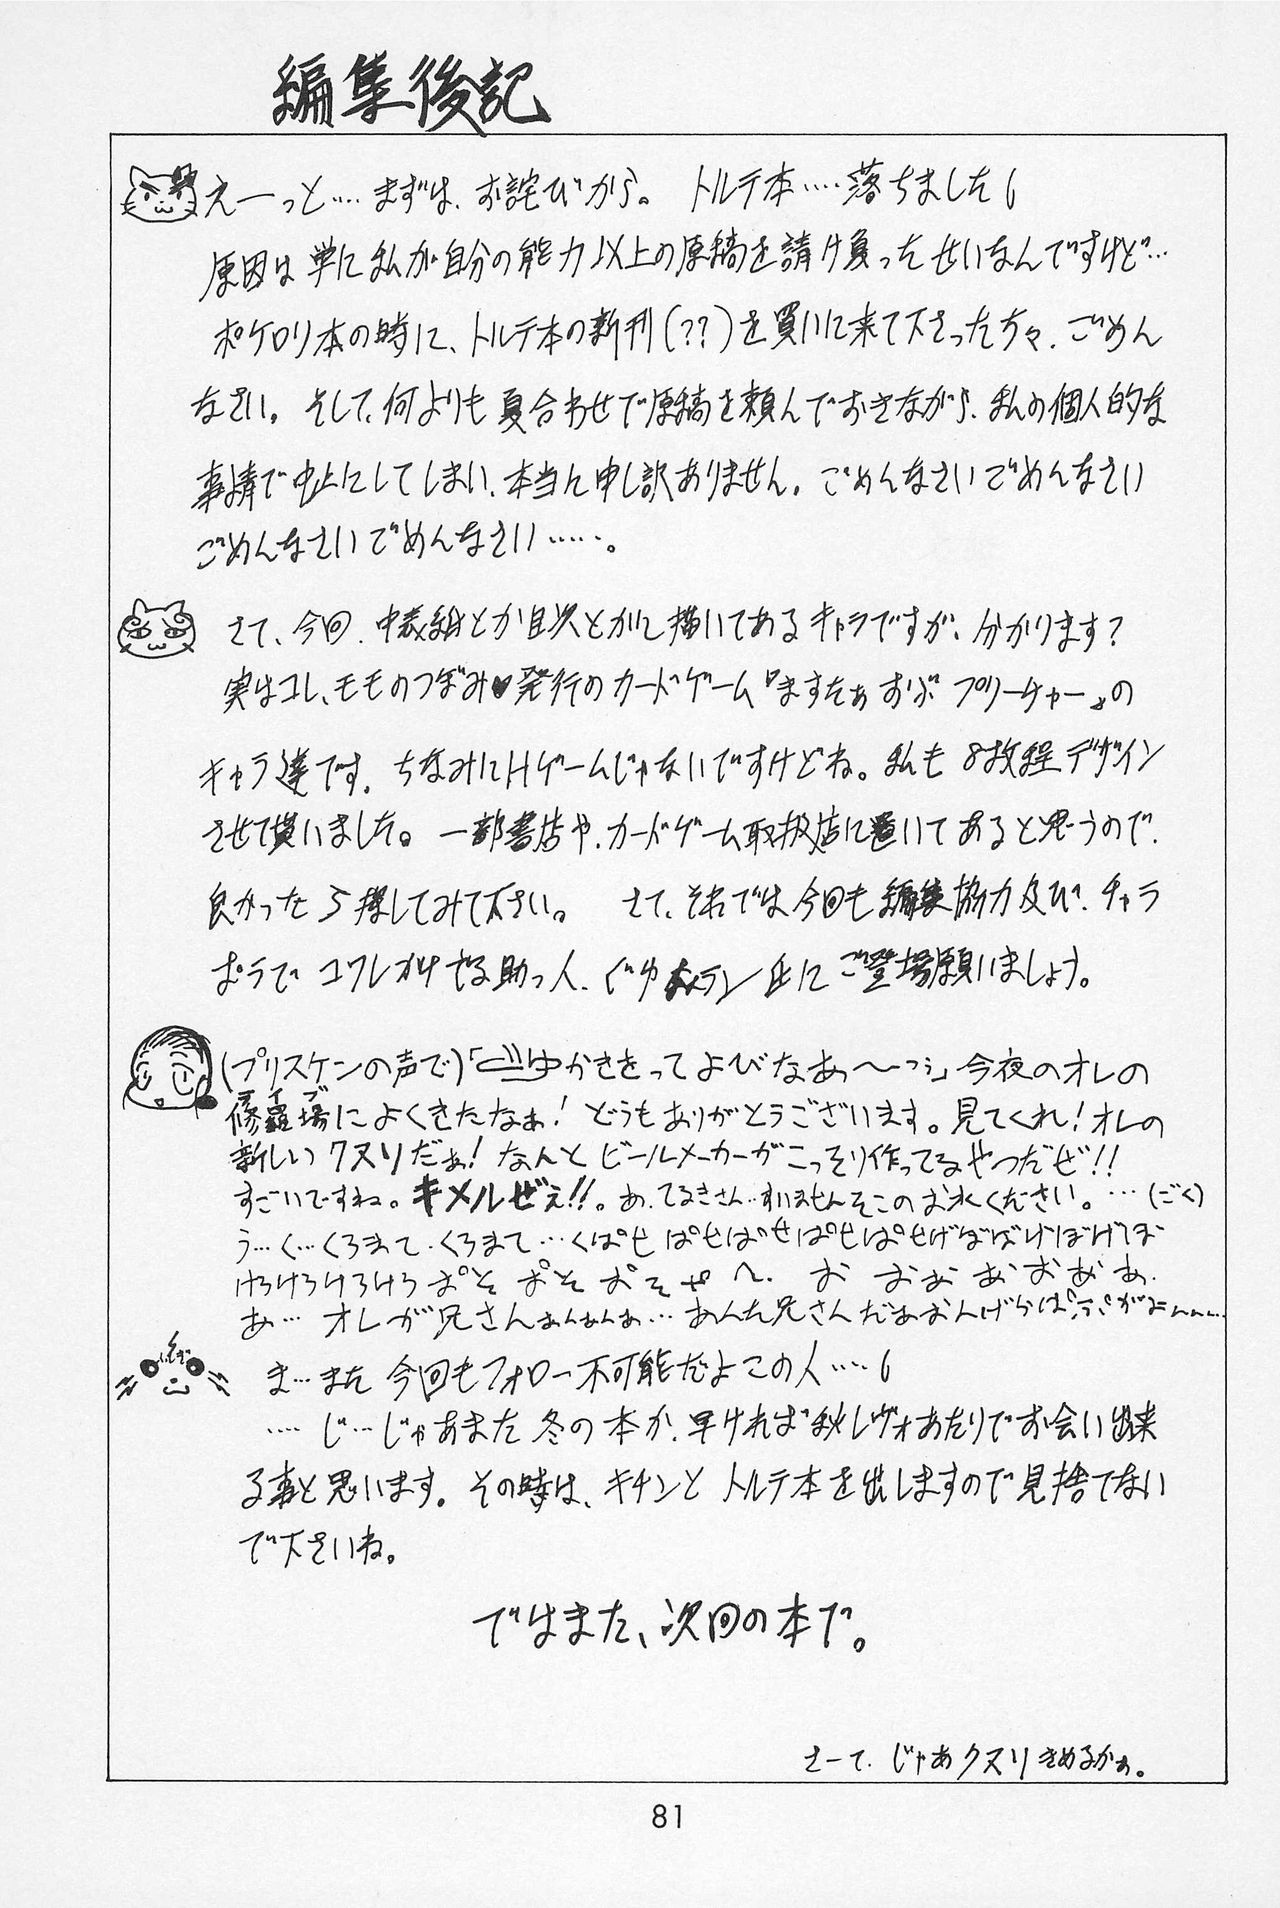 編集後記
えーっと…まずは、お詫びから。トルテ本‥‥落ちました
原因は単に私が自分の能力以上の原稿を請け負ったせいなんですけど…
ポケロリ本の時に、トルテ本の新刊(??)を買いに来て下さった方々、ごめん
なさい。そして、何よりも夏合わせで原稿を頼んでおきながら、私の個人的な
事情で中止にしてしまい、本当に申し訳ありません。ごめんなさいごめんなさい
ごめんなさいごめんなさい……。
さて、今回、中表紙とか目次とかに描いてあるキャラですが、分かります?
実はコレ、モモのつぼみ♥発行のカードゲーム『ますたぁおぶ プリーチャー』の
キャラ達です。ちなみにHゲームじゃないですけどね。私も8枚程デザイン
させて貰いました。一部書店や、カードゲーム取扱店に置いてあると思うので、
良かったら探してみて下さい。 さて、それでは今回も編集協力及び、チャラ
ポラで、コワレかけてる助っ人、ぐゆ テン氏にご登場願いましょう。
(プリスケンの声で)「 かきをってよびなあ〜っ」今夜のオレの
修羅場ライブによくきたなぁ!どうもありがとうございます。見てくれ!オレの
新しいクスリだぁ!なんとビールメーカーがこっそり作ってるやつだぜ!!
すごいですね。キメルぜぇ!!。あ、てるきさん‥すいませんそこのお水ください。…(ごく)
う…く…くろまて、くろまて…くぱせぱせばせぱせぱせげぼぼげぼげぼ
けろけろけろけろ おそ おそ おそ へ、お おぉ おおああ、
あ… オレが兄さんぉんぉんぉ… あんた兄さんだあ
ま…また今回もフォロー不可能だよこの人‥‥
‥‥じ…じゃあまた冬の本か、早ければ秋レヴォあたりでお会い出来
る事と思います。その時は、キチンとトルテ本を出しますので見捨てない
で下さいね。
ではまた、次回の本で。
さーて、じゃあクスリきめるかぁ。
81